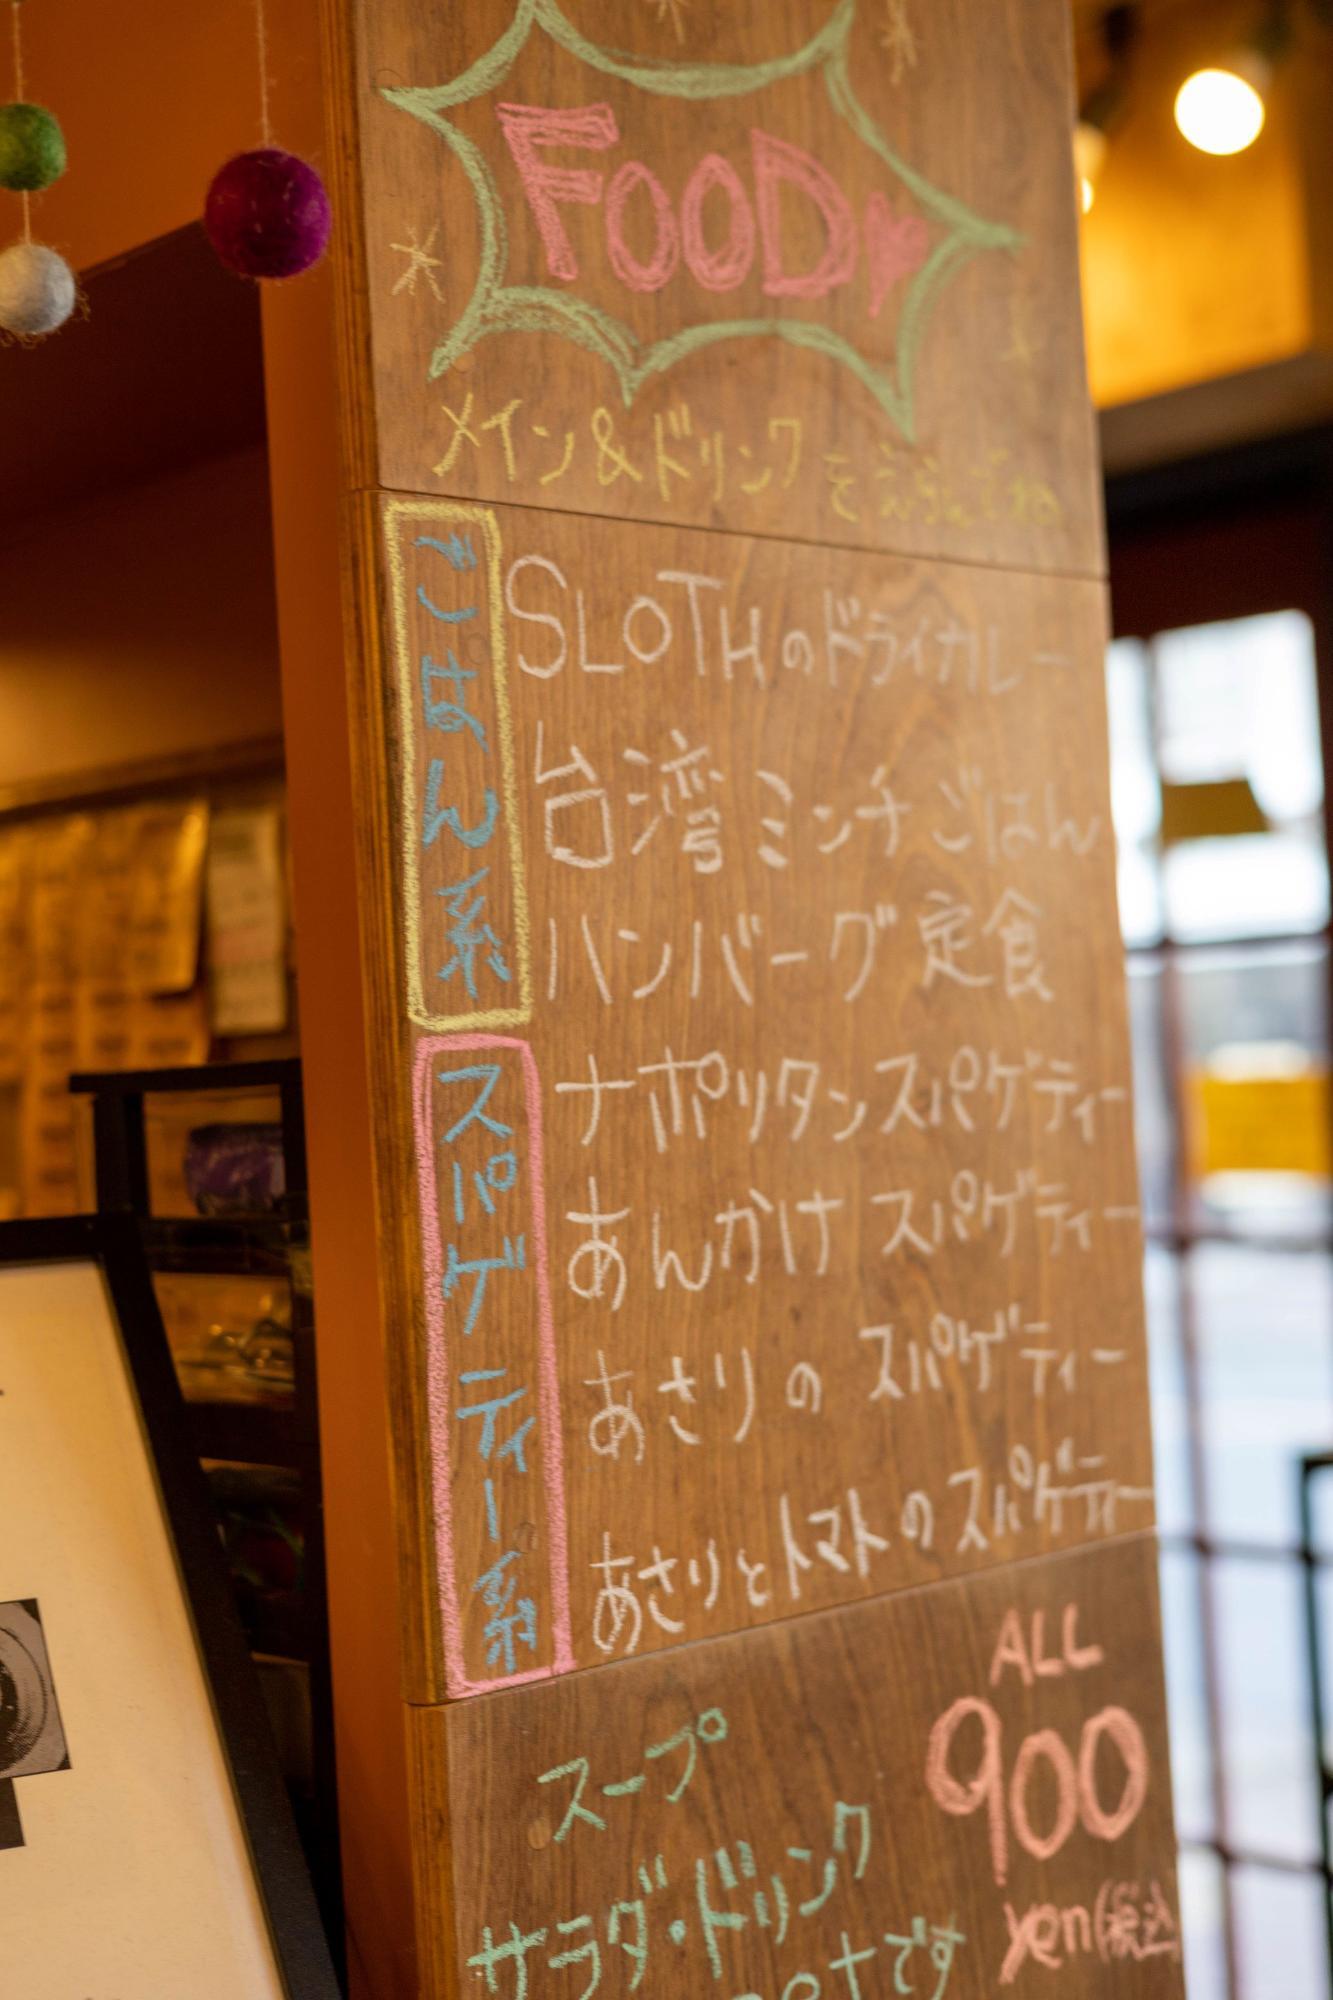 FOOD♥
メイン&ドリンクをえらんでね
ごはん系
SLOTHのドライカレー
台湾ミンチごはん
ハンバーグ定食
スパゲティー系
ナポリタンスパゲティー
あんかけスパゲティー
あさりのスパゲティー
あさりとトマトのスパゲティー
ALL
900
yen(税込)
スープ
サラダ・ドリンク
です